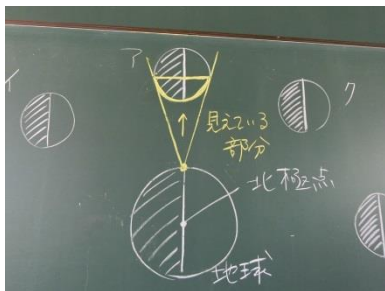 ア
イ
ク
見えている
部分
北極点
地球